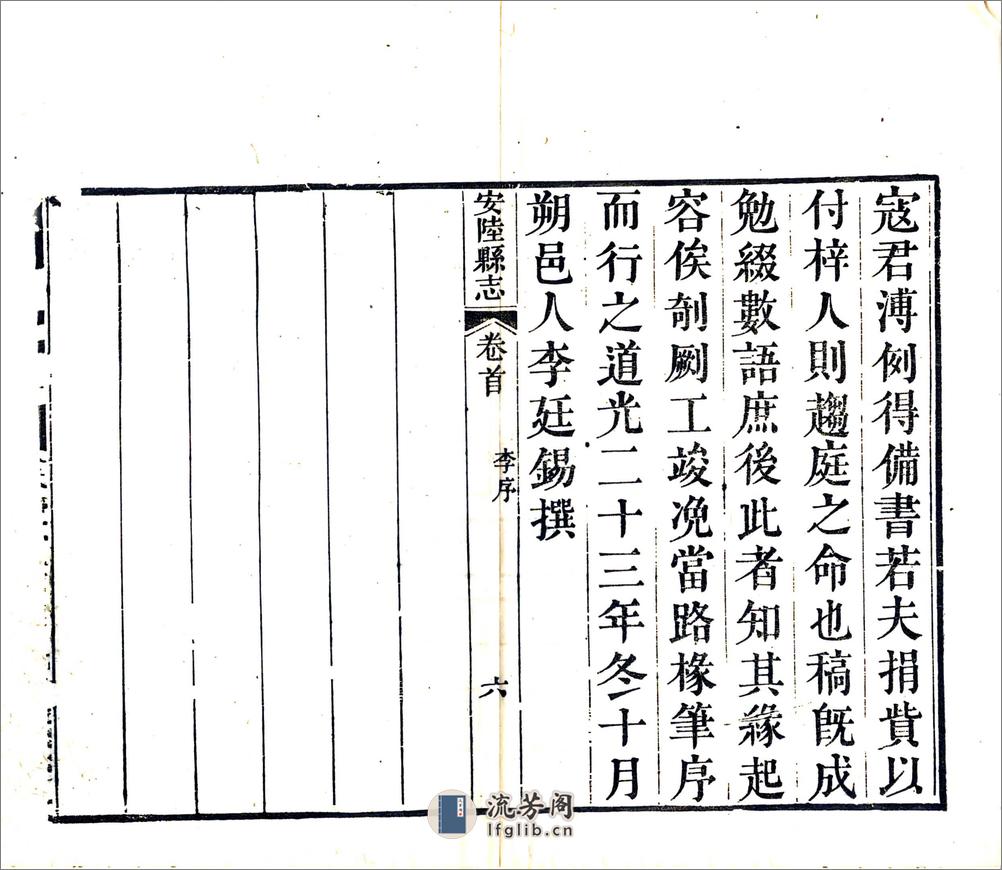 寇君溥例得備書若夫捐貲以
付梓人則趨庭之命也稿旣成
勉綴數語庶後此者知其緣起
容俟剞劂工竣浼當路椽筆序
而行之道光二十三年冬十月
朔邑人李廷錫撰
安陸縣志
卷首
李序
六
流芳阁
lfglib.cn